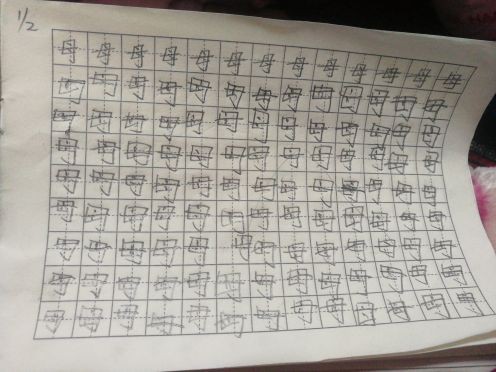 1/2
母母母母母母母母母母母母母
母母母母母母母母母母母母母
母母母母母母母母母母母母母
母母母母母母母母母母母母母
母母母母母母母母母母母母母
母母母母母母母母母母母母母
母母母母母母母母母母母母母
母母母母母母母母母母母母母
母母母母母母母母母母母母母